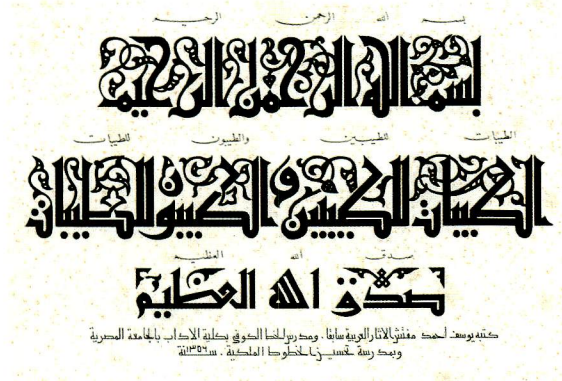 بسم الله الرحمن الرحيم
بسم الله الرحمن الرحيم
الطيبات للطيبين والطيبون للطيبات
الطيبات للطيبين والطيبون للطيبات
صدق الله العظيم
صدق الله العظيم
كتبه يوسف احمد مفتش الآثار العربية سابقا . ومدرس الخط الكوفي بكلية الآداب بالجامعة المصرية
وبمدرسة تحسين الخطوط الملكية . سنة ١٣٥٦